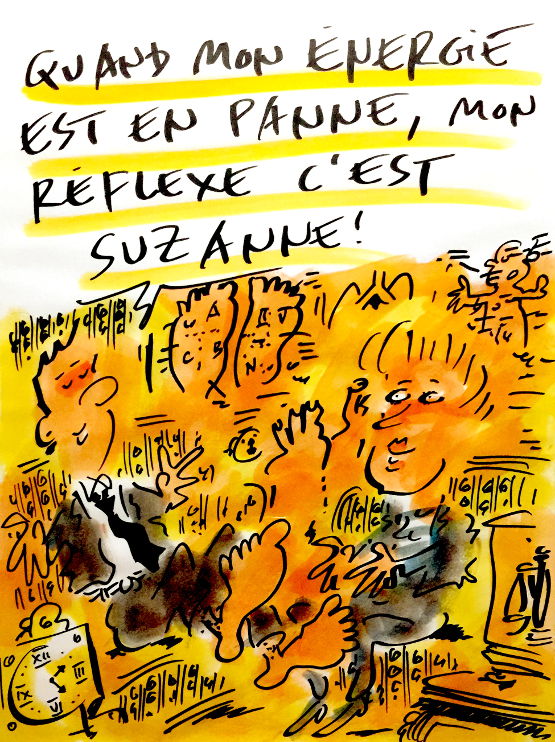 QUAND MON ÉNERGIE
EST EN PANNE, MON
RÉFLEXE C'EST
SUZANNE!
XII
III
VI
IX